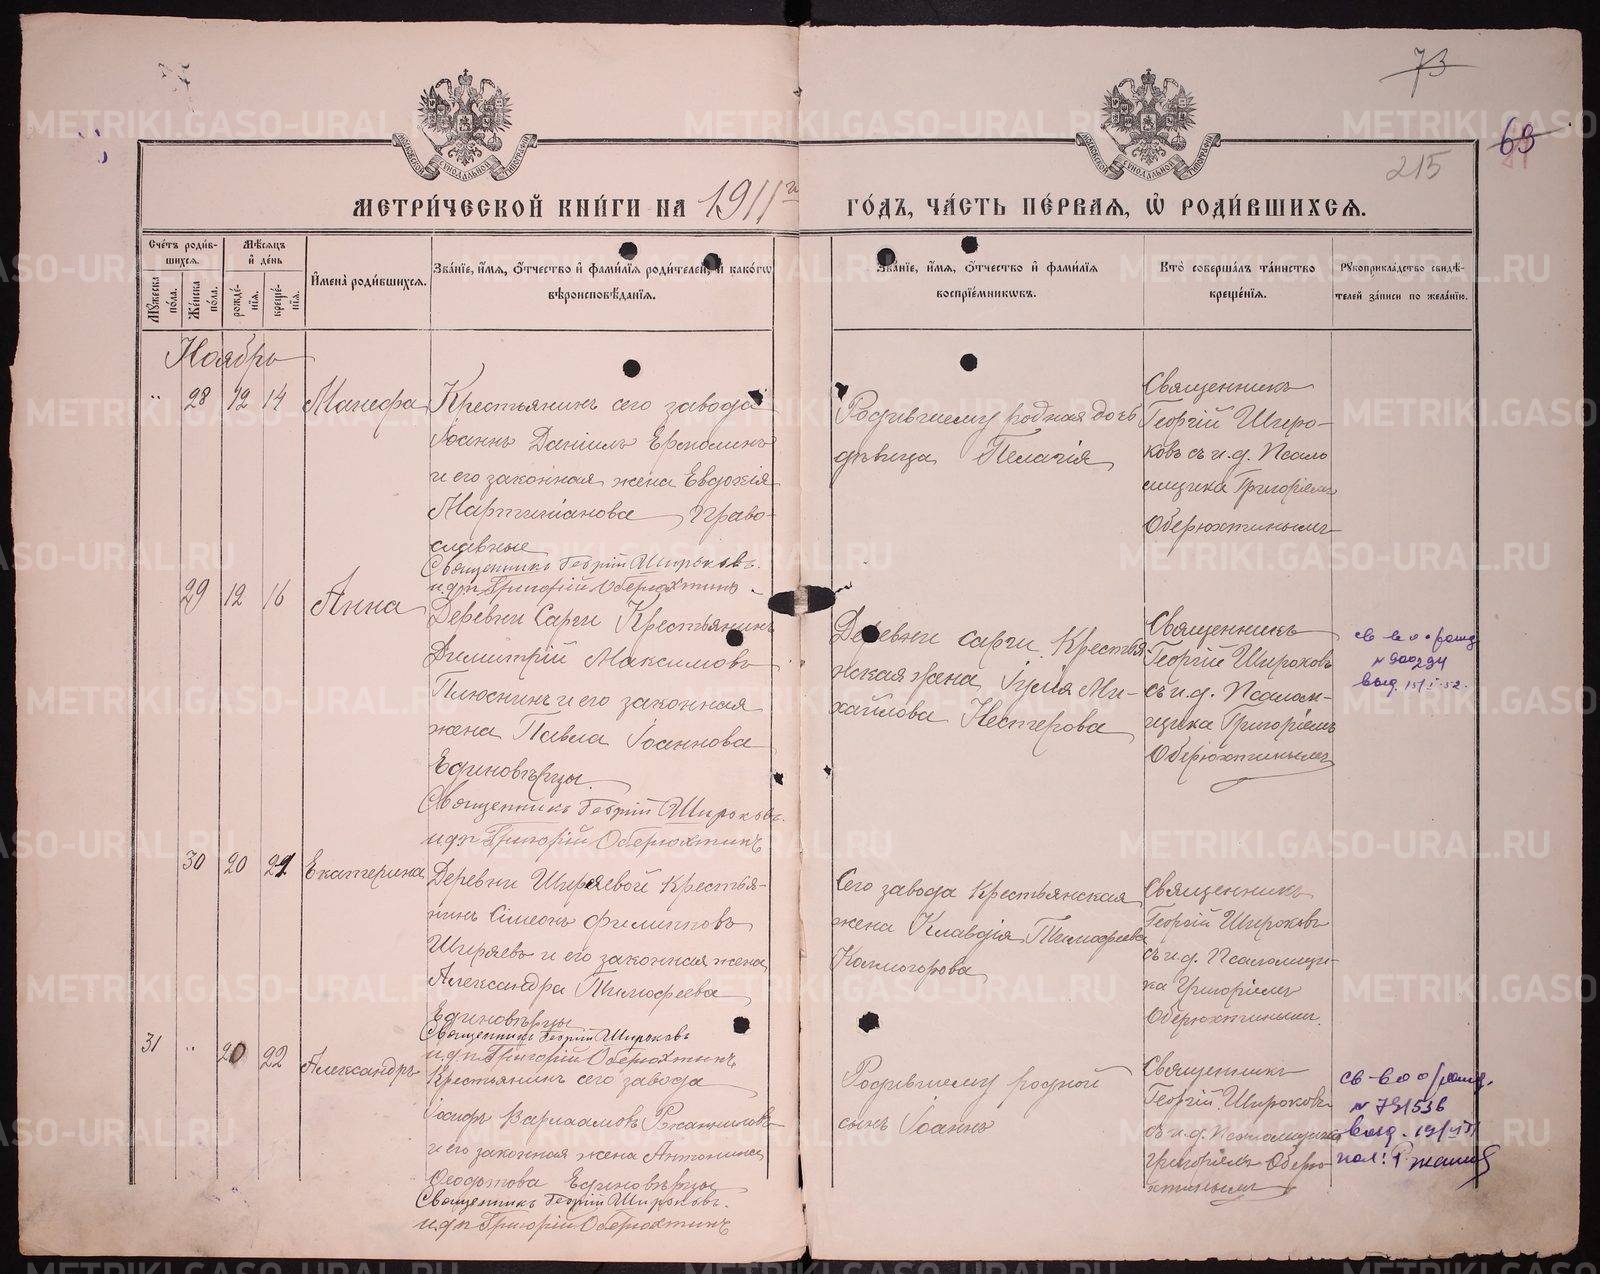 73
69
215
МЕТРИЧЕСКОЙ КНИГИ НА 1911 г ГОДЪ, ЧАСТЬ ПЕРВАЯ, Ѡ РОДИВШИХСЯ.
Счетъ родив-
шихся.
Мужеска пола.
Женска пола.
Мѣсяцъ и день
рожденія.
крещенія.
Имена родившихся.
Званіе, имя, отчество и фамилія родителей, и какогѡ
вѣроисповѣданія.
Званіе, имя, отчество и фамилія
воспріемникѡвъ.
Кто совершалъ таинство
крещенія.
Рукоприкладство свидѣ-
телей записи по желанію.
Ноябрь
" 28 12 14 Манефа
Крестьянинъ сего завода
Іоаннъ Даніилъ Ермолинъ
и его законная жена Евдокія
Мартиніанова Право-
славные
Священникъ Георгій Широковъ.
и.д.п. Григорій Оберюхтинъ
Родившему родная дочь
дѣвица Пелагія
Священникъ
Георгій Широ-
ковъ съ и.д. Псало
мщика Григоріемъ
Оберюхтинымъ
29 12 16 Анна
Деревни Сарги Крестьянинъ
Димитрій Максимовъ
Плюснинъ и его законная
жена Павла Іоаннова
Единовѣрцы
Священникъ Георгій Широковъ.
и.д.п. Григорій Оберюхтинъ
Деревни Сарги Крестья-
нская жена Іулія Ми-
хайлова Нестерова
Священникъ
Георгій Широковъ
съ и.д. Псалом-
щика Григоріемъ
Оберюхтинымъ
св-во о рожд
N 900294
выд. 15/I-52.
30 20 21 Екатерина
Деревни Ширяевой Крестья-
нинъ Сімеонъ Филипповъ
Ширяевъ и его законная жена
Александра Тимофеева
Единовѣрцы
Священникъ Георгій Широковъ
и.д.п. Григорій Оберюхтинъ
Сего завода Крестьянская
жена Клавдія Тимофеева
Колмогорова
Священникъ
Георгій Широковъ
съ и.д. Псаломщи-
ка Григоріемъ
Оберюхтинымъ.
31 " 20 22 Александръ
Крестьянинъ сего завода
Іосифъ Варлаамовъ Ржанниковъ
и его законная жена Антонина
Ѳеодотова Единовѣрцы
Священникъ Георгій Широковъ.
и.д.п. Григорій Оберюхтинъ
Родившему родной
сынъ Іоаннъ
Священникъ
Георгій Широковъ
съ и.д. Псаломщика
Григоріемъ Оберю-
хтинымъ
св-во о рожд.
N 791536
выд. 19/VI
METRIKI.GASO-URAL.RU